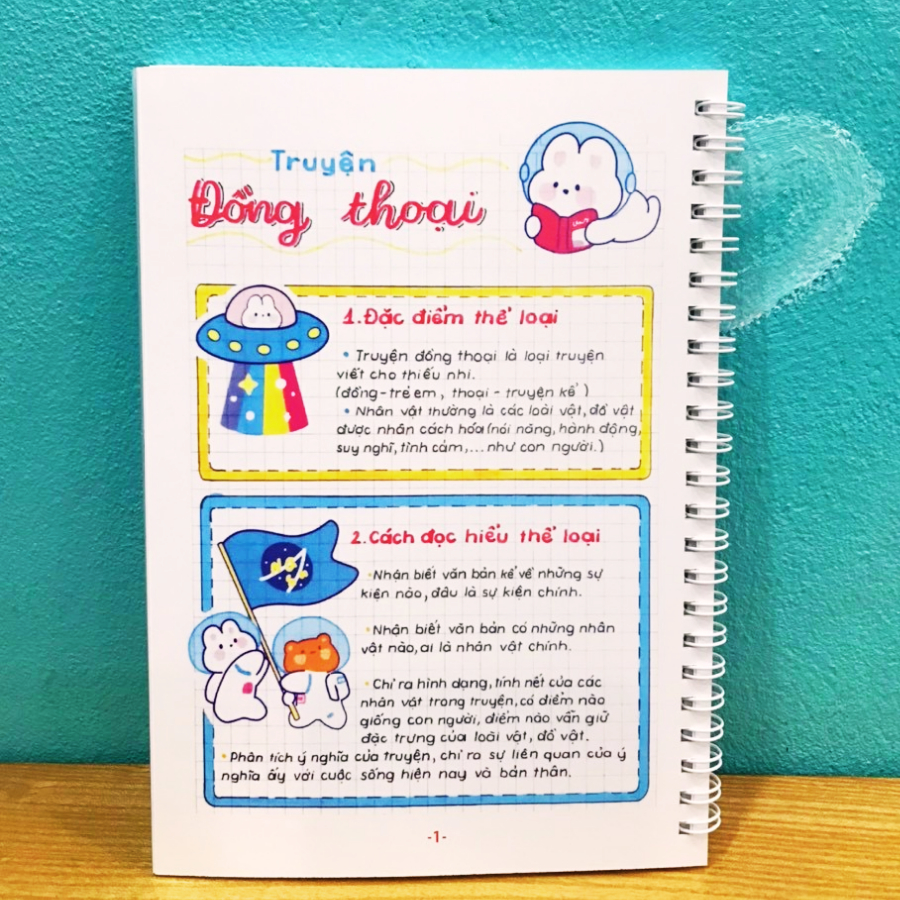 Truyện
Đồng thoại
1.Đặc điểm thể loại
• Truyện đồng thoại là loại truyện
viết cho thiếu nhi.
(đồng-trẻ em, thoại - truyện kể)
• Nhân vật thường là các loài vật, đồ vật
được nhân cách hóa(nói năng, hành động,
suy nghĩ, tình cảm,... như con người.)
2.Cách đọc hiểu thể loại
•Nhận biết văn bản kể về những sự
kiện nào, đâu là sự kiện chính.
•Nhận biết văn bản có những nhân
vật nào, ai là nhân vật chính.
•Chỉ ra hình dạng, tính nết của các
nhân vật trong truyện, có điểm nào
giống con người, điểm nào vẫn giữ
đặc trưng của loài vật, đồ vật.
•Phân tích ý nghĩa của truyện, chỉ ra sự liên quan của ý
nghĩa ấy với cuộc sống hiện nay và bản thân.
-1-